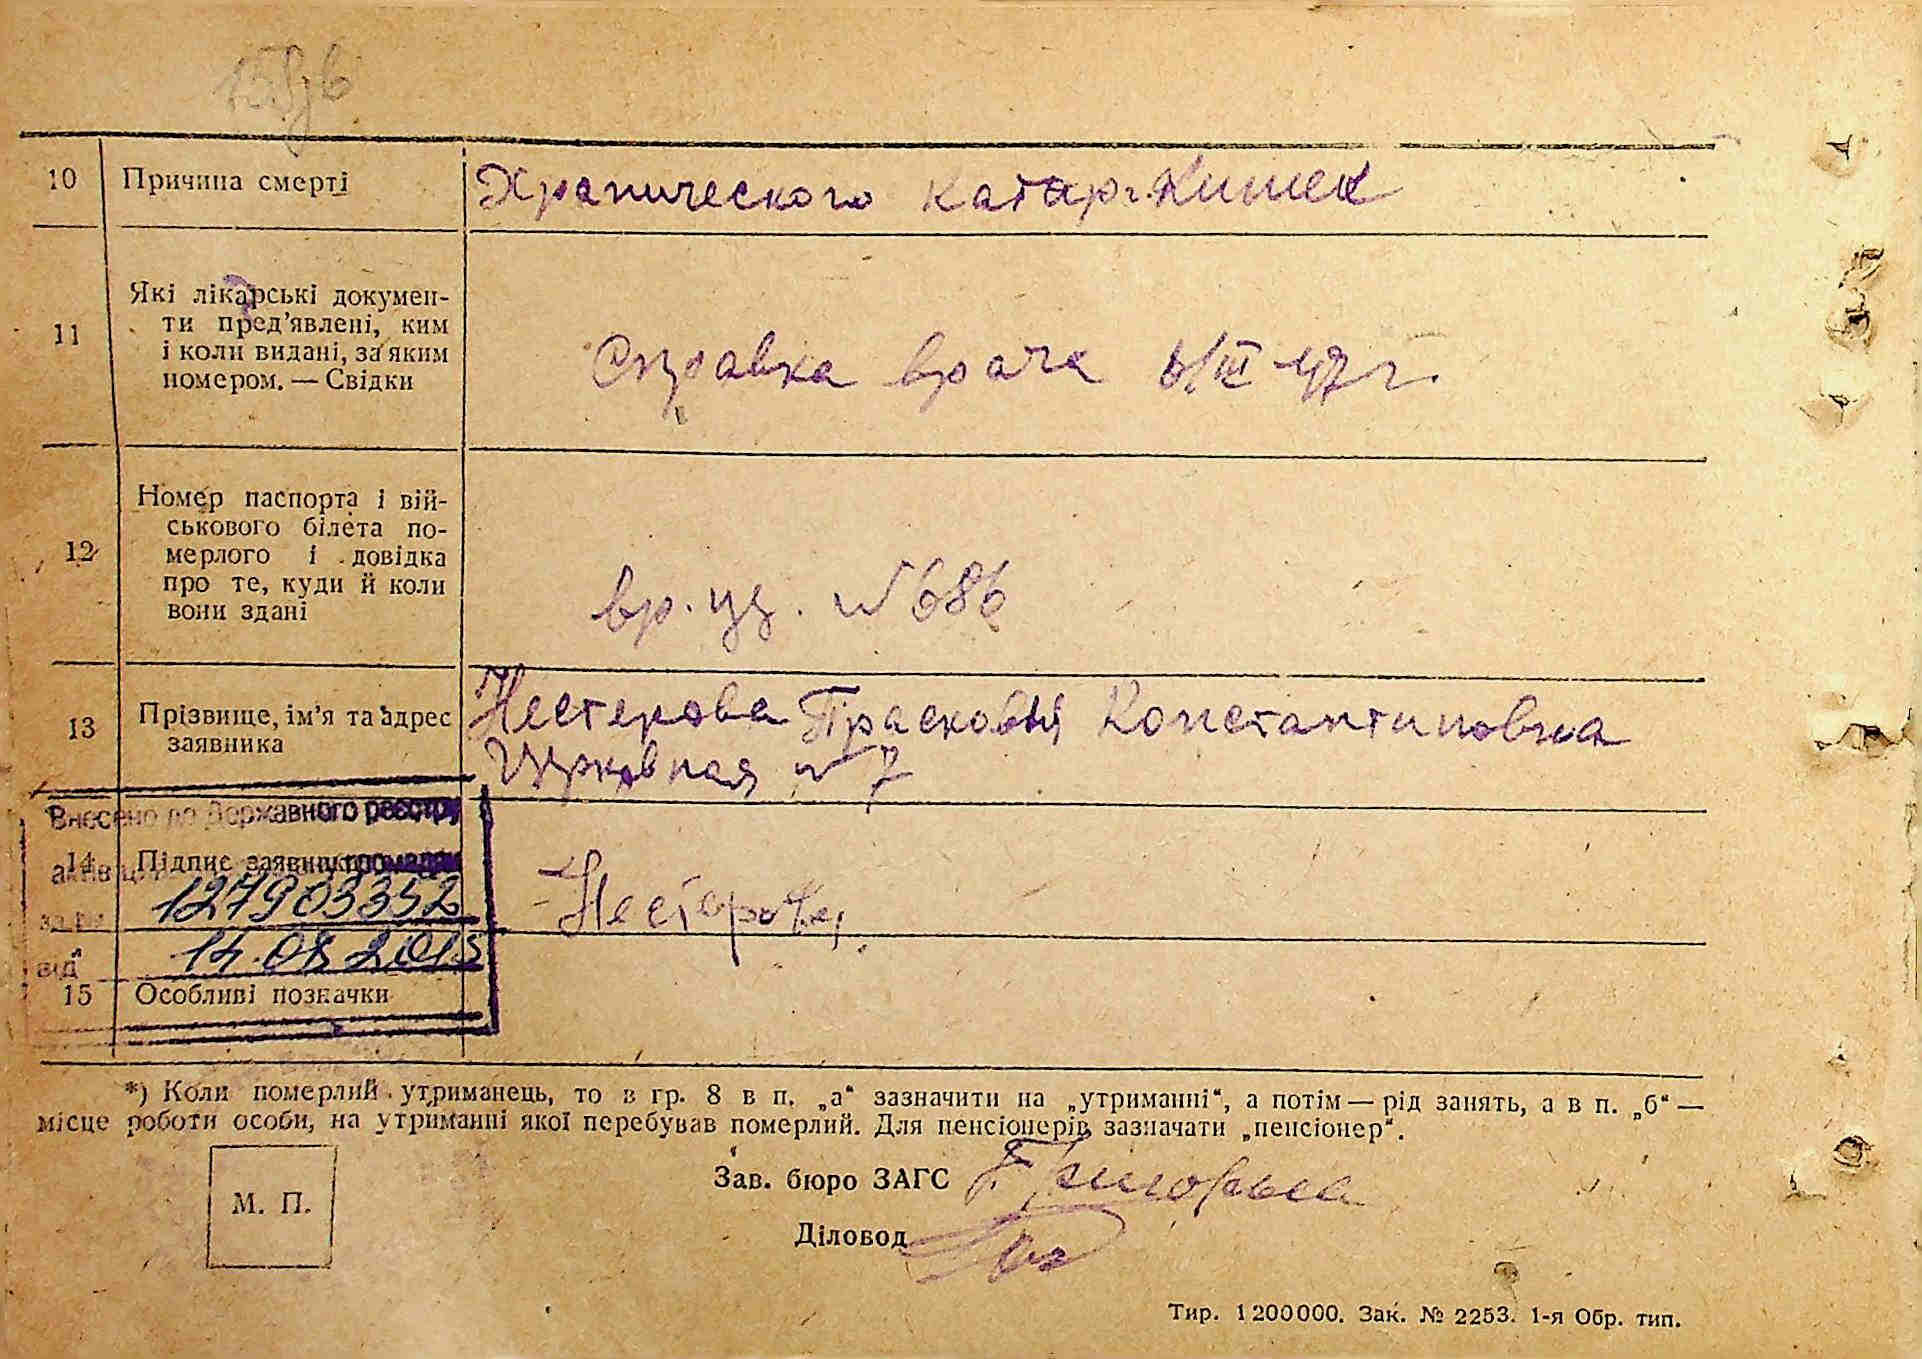 10 Причина смерті Хронического катар. Кишек
11 Які лікарські докумен-
ти пред’явлені, ким
і коли видані, за яким
номером. — Свідки
Справка врача 6/III-47 г.
12 Номер паспорта і вій-
ськового білета по-
мерлого і довідка
про те, куди й коли
вони здані
вр. уд. №686
13 Прізвище, ім’я та адрес
заявника
Нестерова Прасковья Константиновна
Церковная №7
Внесено до Державного реєстру
14 Підпис заявника
Нестерова
127903352
від 14.08.2015
15 Особливі позначки
*) Коли померлий утриманець, то в гр. 8 в п. „а“ зазначити на „утриманні“, а потім — рід занять, а в п. „б“ —
місце роботи особи, на утриманні якої перебував померлий. Для пенсіонерів зазначати „пенсіонер“.
М. П.
Зав. бюро ЗАГС
Діловод
Тир. 1200000. Зак. № 2253. 1-я Обр. тип.